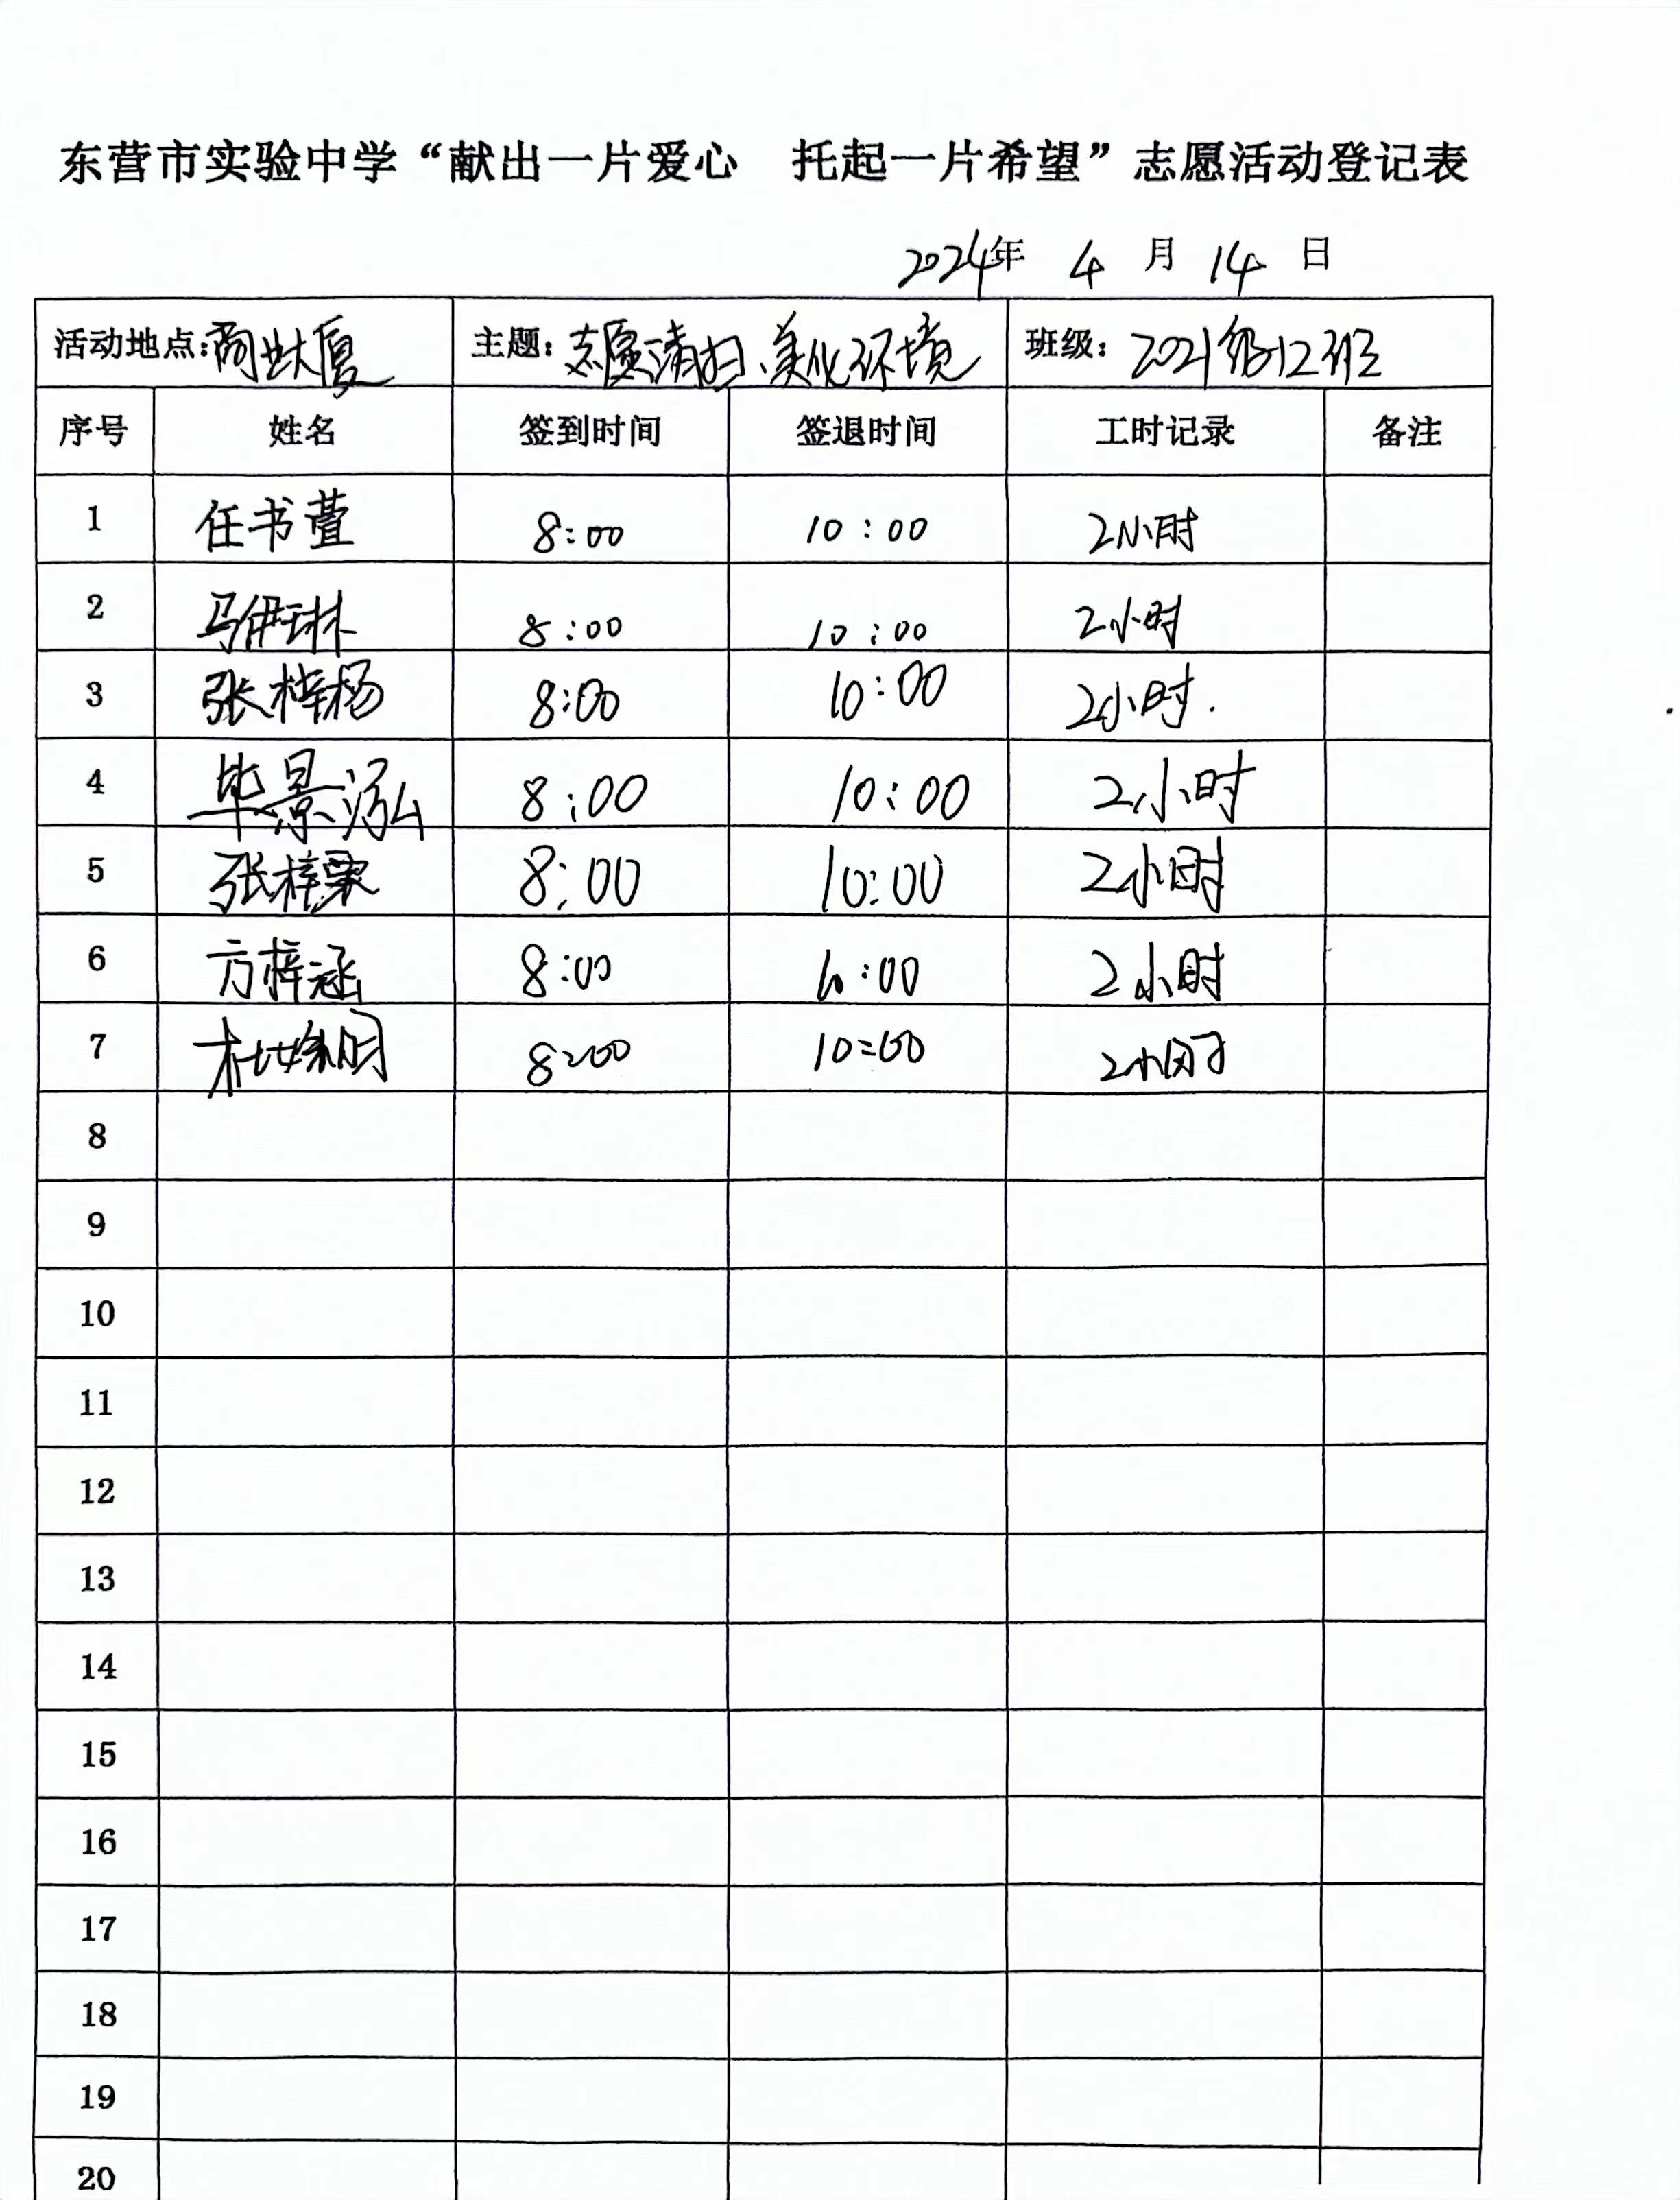 东营市实验中学“献出一片爱心 托起一片希望”志愿活动登记表
2024年 4 月 14 日
活动地点:商业大厦 主题:志愿清扫、美化环境 班级:2021级12班
序号 姓名 签到时间 签退时间 工时记录 备注
1 任书萱 8:00 10:00 2小时
2 马伊琳 8:00 10:00 2小时
3 张梓杨 8:00 10:00 2小时.
4 毕景泓 8:00 10:00 2小时
5 张梓 8:00 10:00 2小时
6 方梓涵 8:00 10:00 2小时
7 杜 8:00 10:00 2小时
8
9
10
11
12
13
14
15
16
17
18
19
20